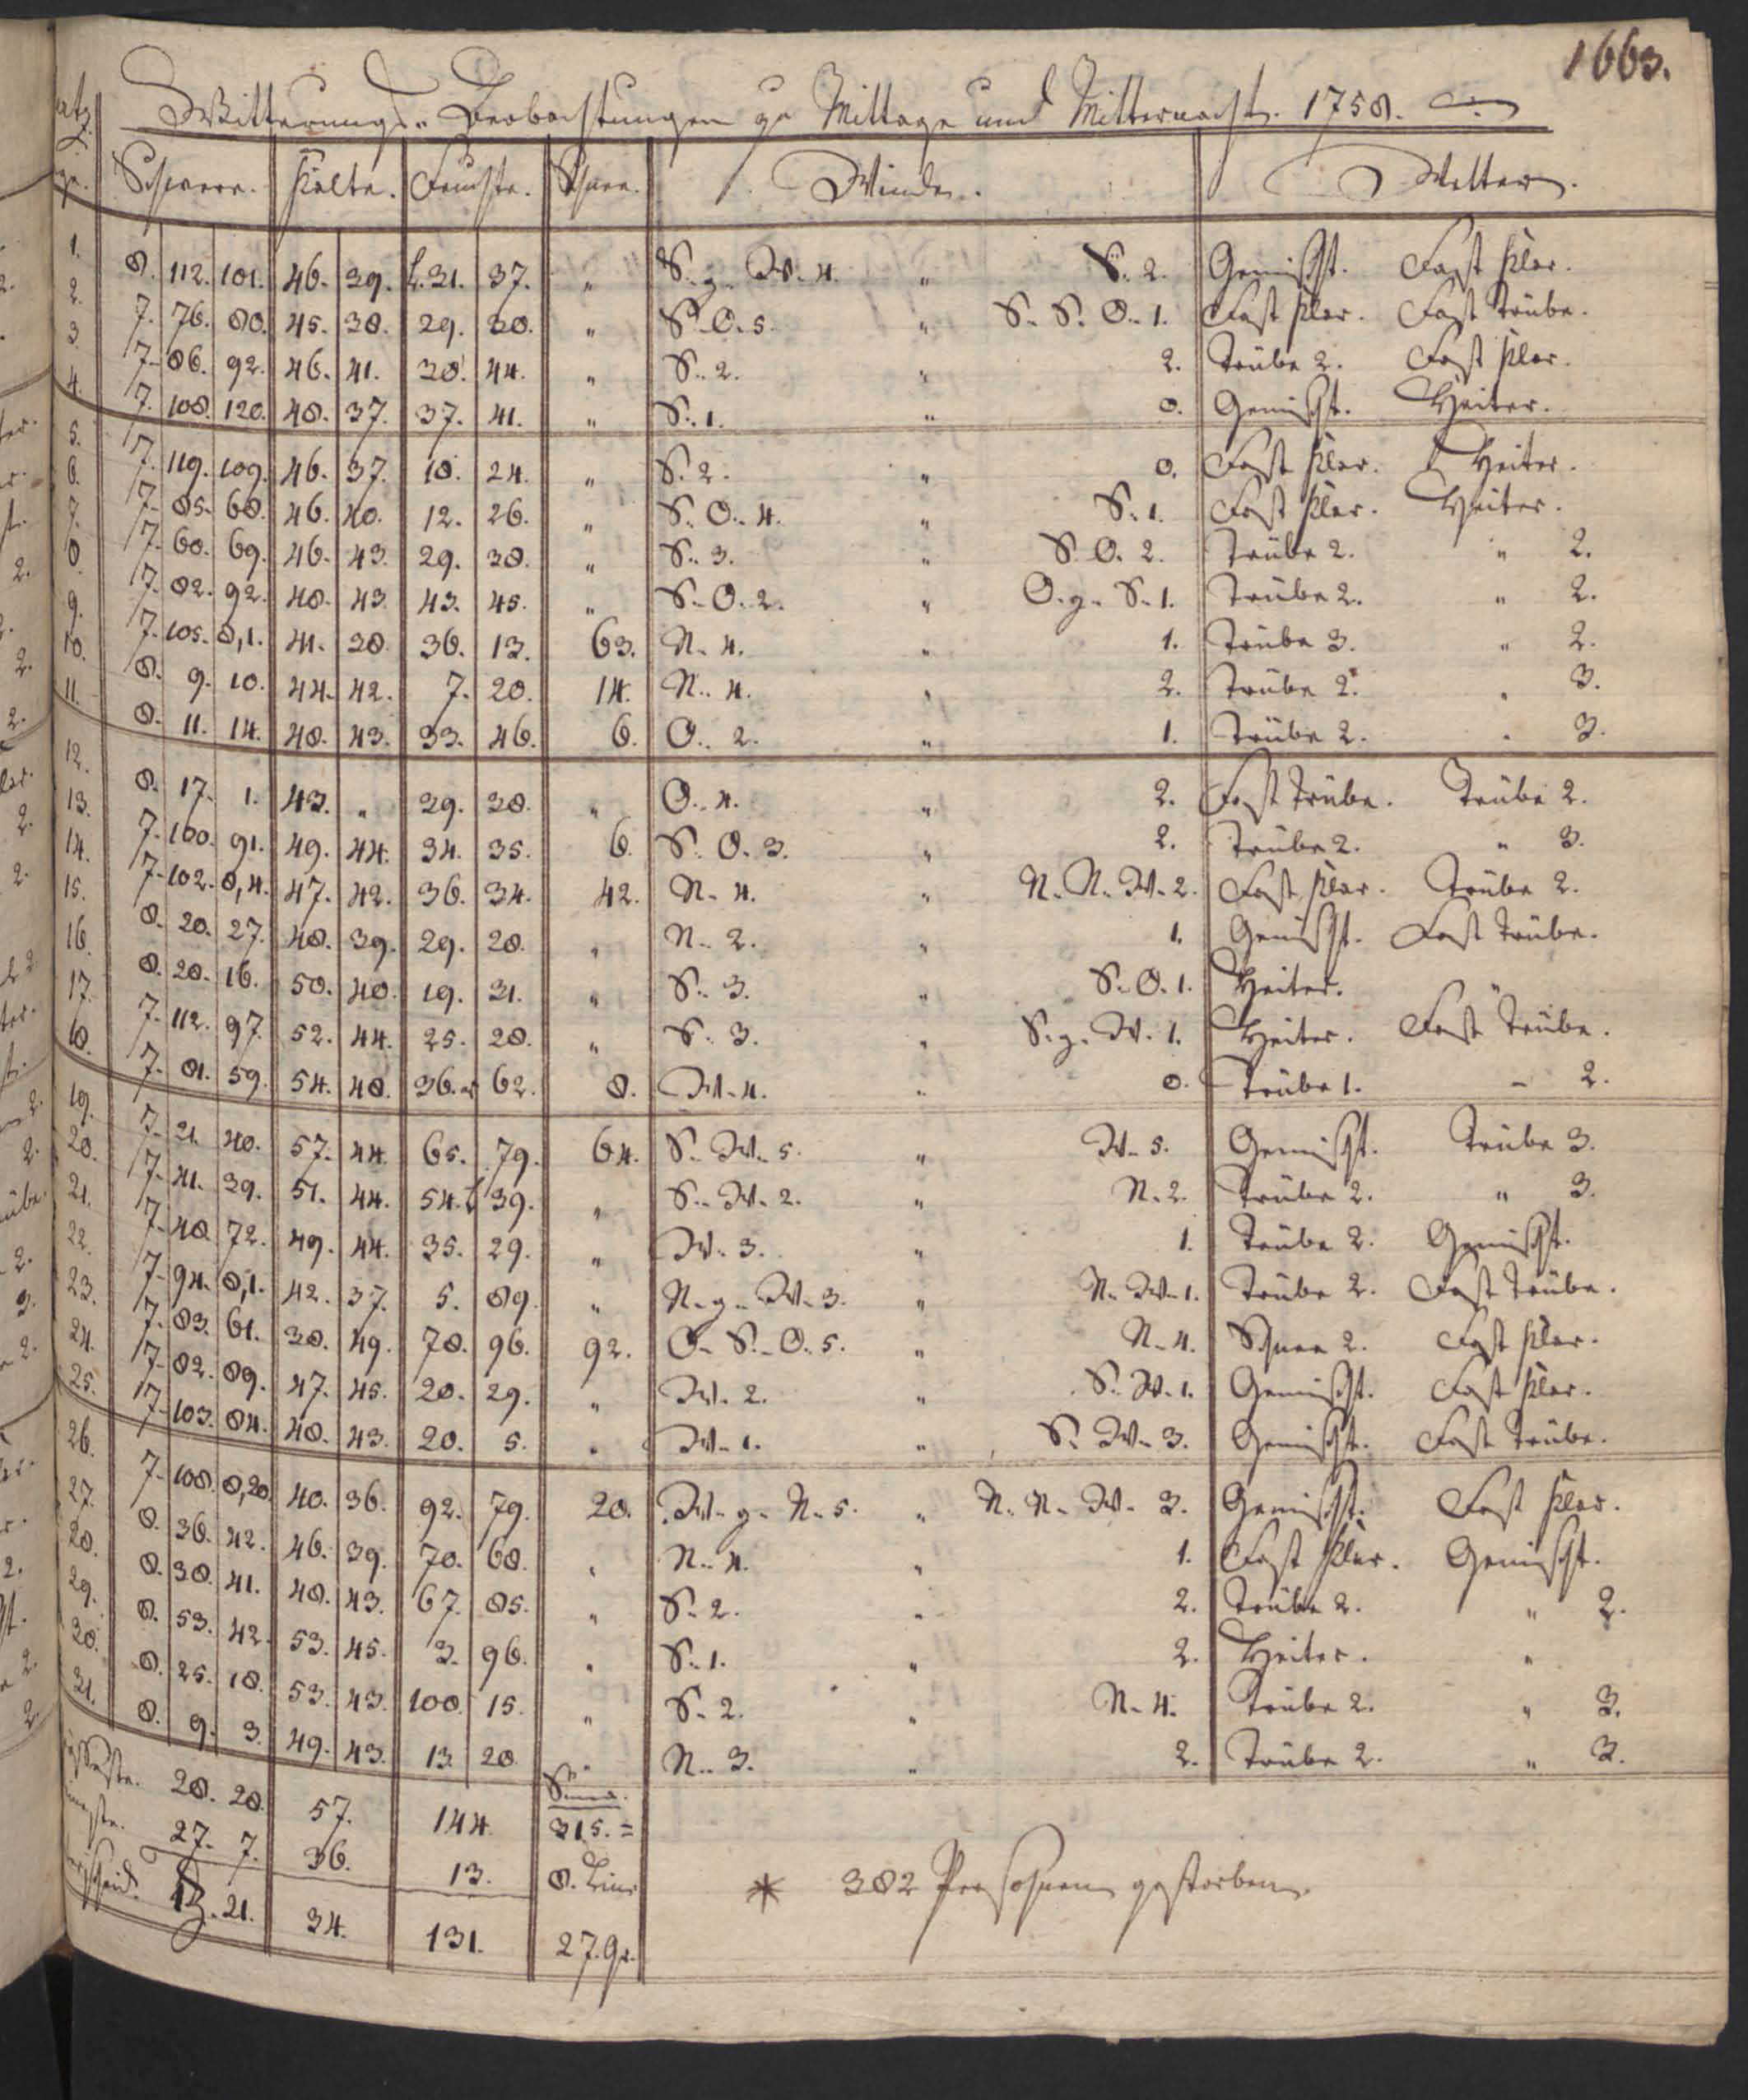 1663.
Witterungs-Beobachtungen zu Mittage und Mitternacht. 1758.
Schwere. Kälte. Feuchte. Schnee. Winde. Wetter.
1. 8. 112. 101. 46. 39. 31. 37. " S. g. W. 4. " S. 2. Gemischt. Fast klar.
2. 7. 76. 80. 45. 38. 29. 30. " S. O. 5. " S. S. O. 1. Fast klar. Fast trübe.
3. 7. 86. 92. 46. 41. 38. 44. " S. 2. " 2. Trübe 2. Fast klar.
4. 7. 108. 120. 48. 37. 37. 41. " S. 1. " 0. Gemischt. Heiter.
5. 7. 119. 109. 46. 37. 18. 24. " S. 2. " 0. Fast klar. Heiter.
6. 7. 85. 68. 46. 40. 12. 26. " S. O. 4. " S. 1. Fast klar. Heiter.
7. 7. 60. 69. 46. 43. 29. 38. " S. 3. " S. O. 2. Trübe 2. " 2.
8. 7. 82. 92. 48. 43. 43. 45. " S. O. 2. " O. g. S. 1. Trübe 2. " 2.
9. 7. 105. 8,1. 41. 38. 36. 13. 63. N. 4. " 1. Trübe 3. " 2.
10. 8. 9. 10. 44. 42. 7. 20. 14. N. 4. " 2. Trübe 2. " 3.
11. 8. 11. 14. 48. 43. 33. 46. 6. O. 2. " 1. Trübe 2. " 3.
12. 8. 17. 1. 43. " 39. 38. " O. 4. " 2. Fast trübe. Trübe 2.
13. 7. 100. 91. 49. 44. 34. 35. 6. S. O. 3. " 2. Trübe 2. " 3.
14. 7. 102. 8,4. 47. 42. 36. 34. 42. N. 4. " N. N. W. 2. Fast klar. Trübe 2.
15. 8. 20. 27. 48. 39. 29. 28. " N. 2. " 1. Gemischt. Fast trübe.
16. 8. 28. 16. 50. 40. 19. 31. " S. 3. " S. O. 1. Heiter. "
17. 7. 112. 97. 52. 44. 25. 28. " S. 3. " S. g. W. 1. Heiter. Fast trübe.
18. 7. 81. 59. 54. 48. 36. 62. 8. W. 4. " 0. Trübe 1. " 2.
19. 7. 21. 40. 57. 44. 65. 79. 64. S. W. 5. " W. 5. Gemischt. Trübe 3.
20. 7. 41. 39. 51. 44. 54. 39. " S. W. 2. " N. 2. Trübe 2. " 3.
21. 7. 48. 72. 49. 44. 35. 29. " W. 3. " 1. Trübe 2. Gemischt.
22. 7. 94. 8,1. 42. 37. 5. 89. " N. g. W. 3. " N. W. 1. Trübe 2. Fast trübe.
23. 7. 83. 61. 38. 49. 78. 96. 92. O. S. O. 5. " N. 4. Schnee 2. Fast klar.
24. 7. 82. 89. 47. 45. 20. 29. " W. 2. " S. W. 1. Gemischt. Fast klar.
25. 7. 103. 84. 48. 43. 20. 5. " W. 1. " S. W. 3. Gemischt. Fast trübe.
26. 7. 108. 8,20. 40. 36. 92. 79. 20. W. g. N. 5. " N. N. W. 3. Gemischt. Fast klar.
27. 8. 36. 42. 46. 39. 70. 68. " N. 4. " 1. Fast klar. Gemischt.
28. 8. 38. 41. 48. 43. 67. 85. " S. 2. " 2. Trübe 2. " 2.
29. 8. 53. 42. 53. 45. 3. 96. " S. 1. " 2. Heiter. "
30. 8. 25. 18. 53. 43. 100. 15. " S. 2. " N. 4. Trübe 2. " 3.
31. 8. 9. 3. 49. 43. 13. 20. " N. 3. " 2. Trübe 2. " 3.
28. 20. 57. 144. 315. =
27. 7. 36. 13. 8. Lin.
13. 21. 34. 131. 27. gr.
* 382 Personen gestorben.